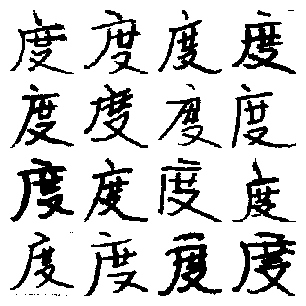 度度度度
度度度度
度度度度
度度度度